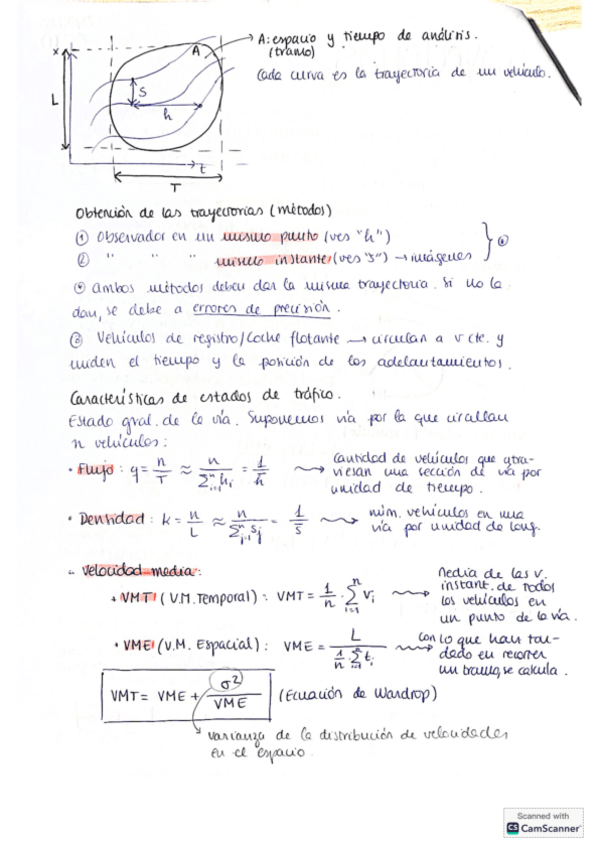 A: espacio y tiempo de análisis.
(tramo)
Cada curva es la trayectoria de un vehículo.
x
A
L
s
h
t
T
Obtención de las trayectorias (métodos)
① Observador en un mismo punto (ves "h")
② " " " mismo instante (ves "s") → imágenes
Ambos métodos deben dar la misma trayectoria. Si no la
dan, se debe a errores de precisión.
③ Vehículos de registro/coche flotante → circulan a v cte. y
miden el tiempo y la posición de los adelantamientos.
Características de estados de tráfico.
Estado gral. de la vía. Suponemos vía por la que circulan
n vehículos:
• Flujo: q = n/T ≈ n/∑ⁿᵢ₌₁ hᵢ = 1/h̄ → Cantidad de vehículos que atra-
viesan una sección de vía por
unidad de tiempo.
• Densidad: k = n/L ≈ n/∑ⁿⱼ₌₁ sⱼ = 1/s̄ → núm. vehículos en una
vía por unidad de long.
- Velocidad media:
+ VMT (V.M. Temporal): VMT = 1/n · ∑ⁿᵢ₌₁ vᵢ → Media de las v.
instant. de todos
los vehículos en
un punto de la vía.
• VME (V.M. Espacial): VME = L / (1/n · ∑ⁿᵢ₌₁ tᵢ) → Con lo que han tar-
dado en recorrer
un tramo, se calcula.
VMT = VME + σ²/VME (Ecuación de Wardrop)
varianza de la distribución de velocidades
en el espacio.
Scanned with
CS CamScanner